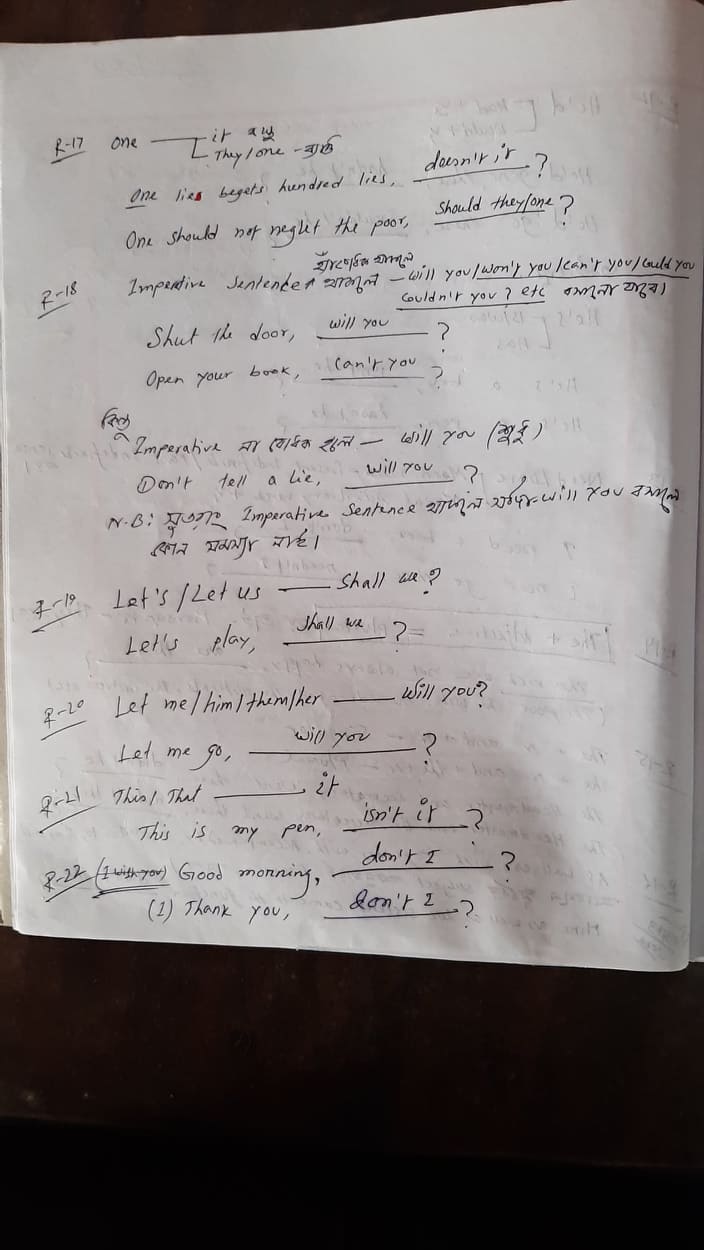 R-17 One — it বস্তু
They/one - ব্যক্তি
One lies begets hundred lies, doesn't it ?
One should not neglet the poor, should they/one ?
হ্যাঁবোধক থাকলে
R-18 Imperative Sentence থাকলে - will you/won't you/can't you/could you
couldn't you ? etc বসানো যাবে।
Shut the door, will you ?
Open your book, can't you ?
কিন্তু
Imperative না বোধক হলে — will you (শুধু)
Don't tell a lie, will you ?
N.B: সুতরাং Imperative Sentence থাকলে will you বসালে
কোন সমস্যা নাই।
R-19 Let's/Let us — Shall we?
Let's play, shall we ?
R-20 Let me/him/them/her — will you?
Let me go, will you ?
R-21 This/That — it
This is my pen, isn't it ?
R-22 (I wish you) Good morning, don't I ?
(I) Thank you, don't I ?